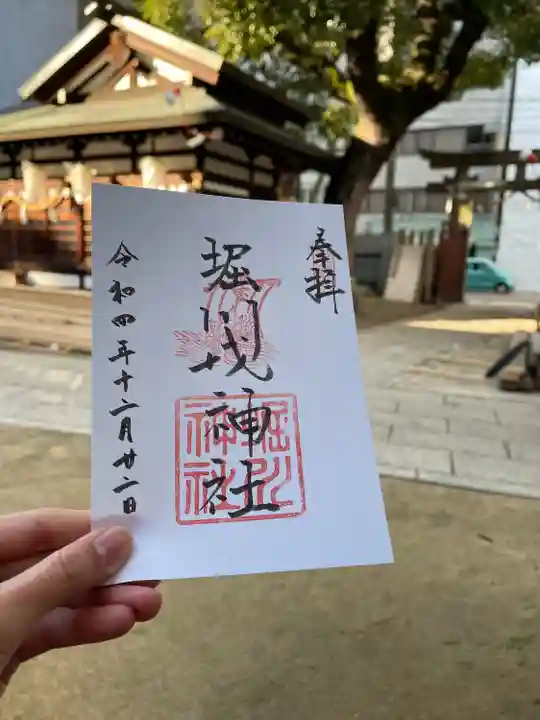 奉拝
堀川戎神社
堀川
神社
令和四年十二月廿二日